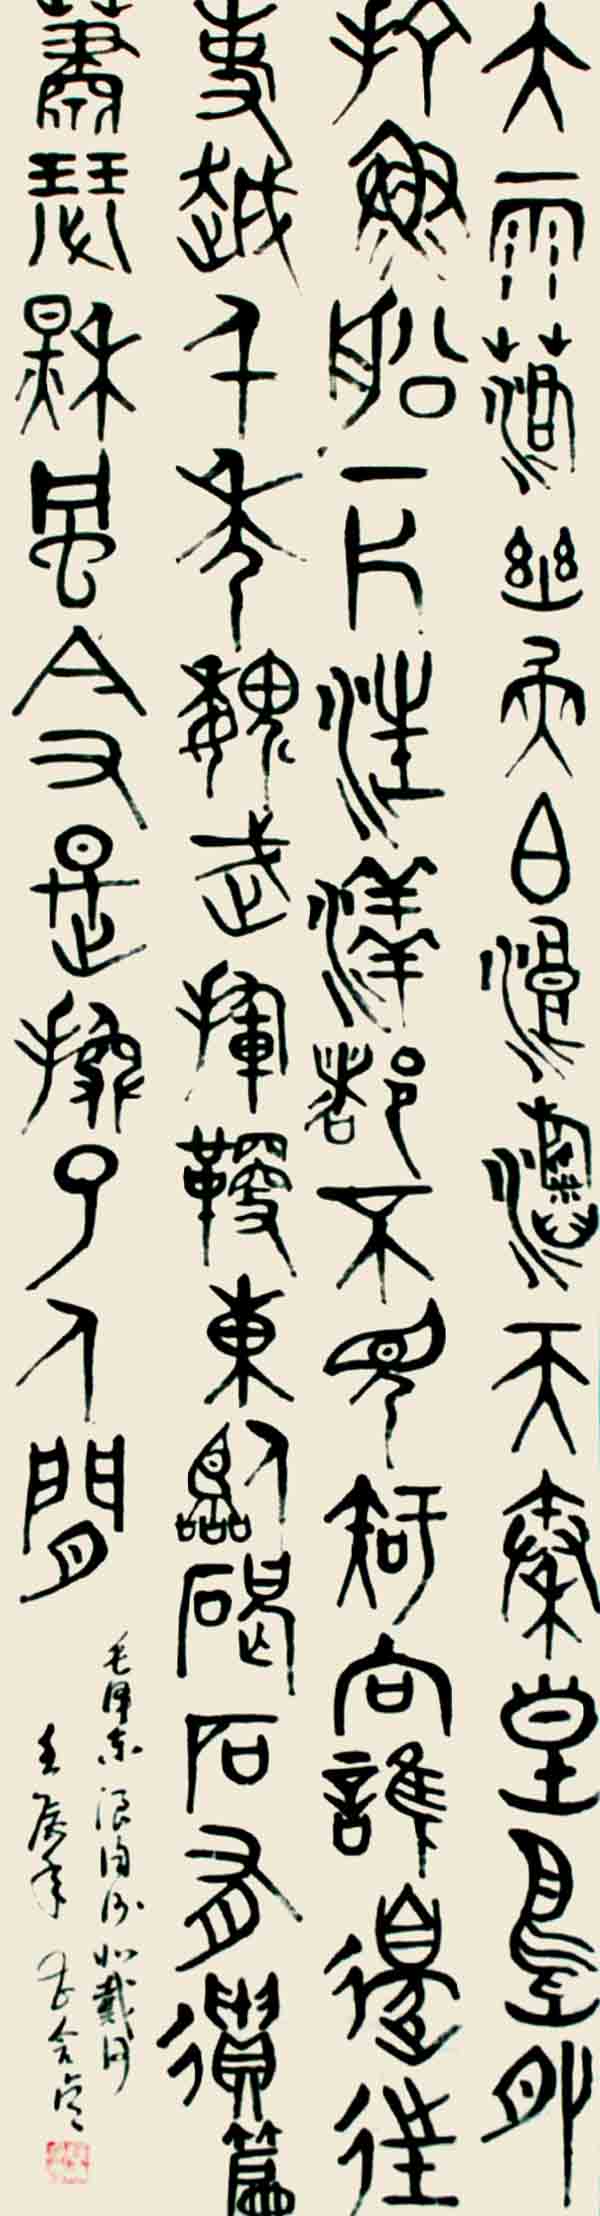 大雨落幽燕白浪滔天秦皇島外
打魚船一片汪洋都不見知向誰邊往
事越千年魏武揮鞭東臨碣石有遺篇
蕭瑟秋風今又是換了人間
毛泽东浪淘沙北戴河
壬辰年